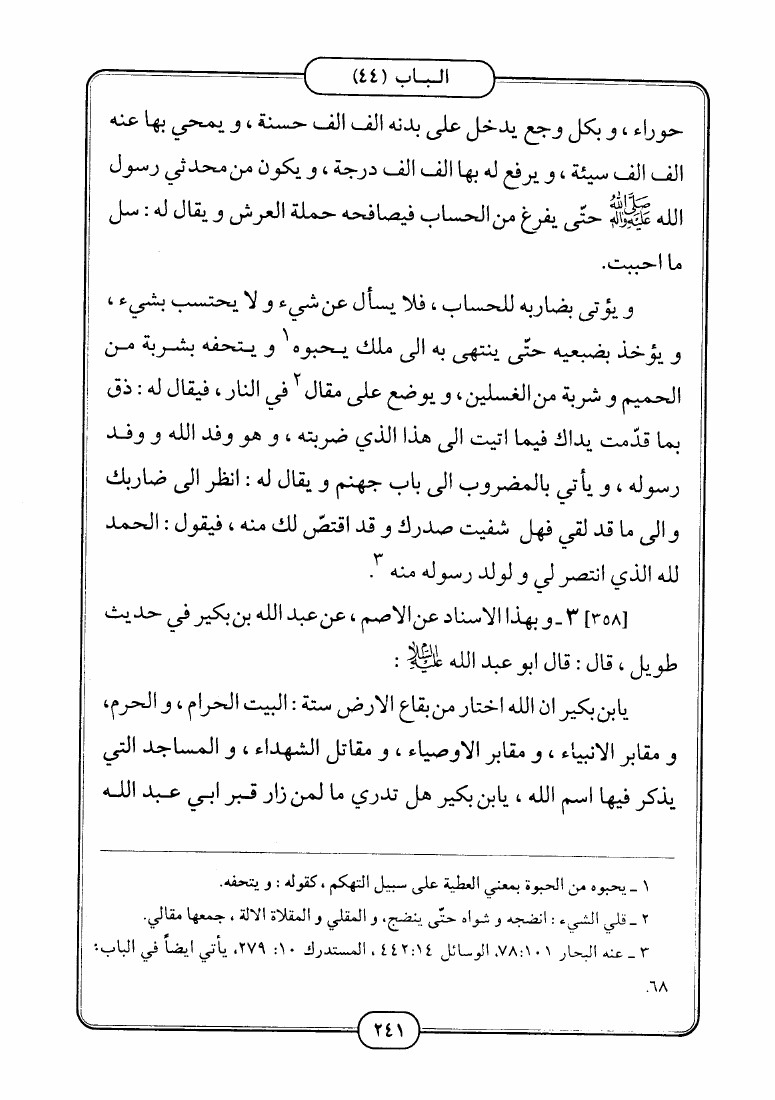 الباب (٤٤)
حوراء ، و بكل وجع يدخل على بدنه الف الف حسنة ، و يمحي بها عنه
الف الف سيئة ، و يرفع له بها الف الف درجة ، و يكون من محدثي رسول
الله ﷺ حتّى يفرغ من الحساب فيصافحه حملة العرش و يقال له : سل
ما احببت.
و يؤتى بضاربه للحساب ، فلا يسأل عن شيء و لا يحتسب بشيء ،
و يؤخذ بضبعيه حتّى ينتهى به الى ملك يحبوه١ و يتحفه بشربة من
الحميم و شربة من الغسلين، و يوضع على مقال٢ في النار ، فيقال له : ذق
بما قدّمت يداك فيما اتيت الى هذا الذي ضربته ، و هو وفد الله و وفد
رسوله ، و يأتي بالمضروب الى باب جهنم و يقال له : انظر الى ضاربك
و الى ما قد لقي فهل شفيت صدرك و قد اقتصّ لك منه ، فيقول : الحمد
لله الذي انتصر لي و لولد رسوله منه ٣.
[٣٥٨] ٣ ـ و بهذا الاسناد عن الاصم ، عن عبد الله بن بكير في حديث
طويل ، قال : قال ابو عبد الله عليه السلام :
يابن بكير ان الله اختار من بقاع الارض ستة : البيت الحرام ، و الحرم،
و مقابر الانبياء ، و مقابر الاوصياء ، و مقاتل الشهداء ، و المساجد التي
يذكر فيها اسم الله ، يابن بكير هل تدري ما لمن زار قبر ابي عبد الله
١ ـ يحبوه من الحبوة بمعني العطية على سبيل التهكم ، كقوله : و يتحفه.
٢ ـ قلي الشيء : انضجه و شواه حتّى ينضج، و المقلي و المقلاة الالة ، جمعها مقالي.
٣ ـ عنه البحار ١٠١:٧٨، الوسائل ١٤:٤٤٢ ، المستدرك ١٠: ٢٧٩، يأتي ايضاً في الباب:
٦٨.
٢٤١